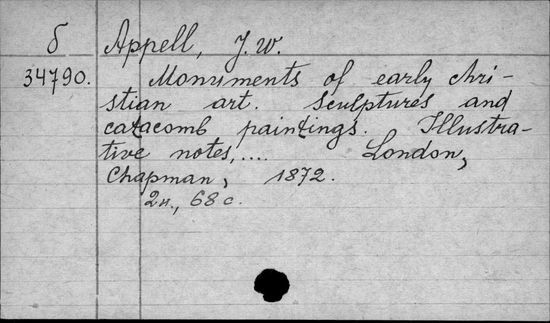 б Appell, J. W.
34790. Monuments of early chri-
stian art. Sculptures and
catacomb paintings. Illustra-
tive notes,.... London,
Chapman, 1872.
2н., 68 с.